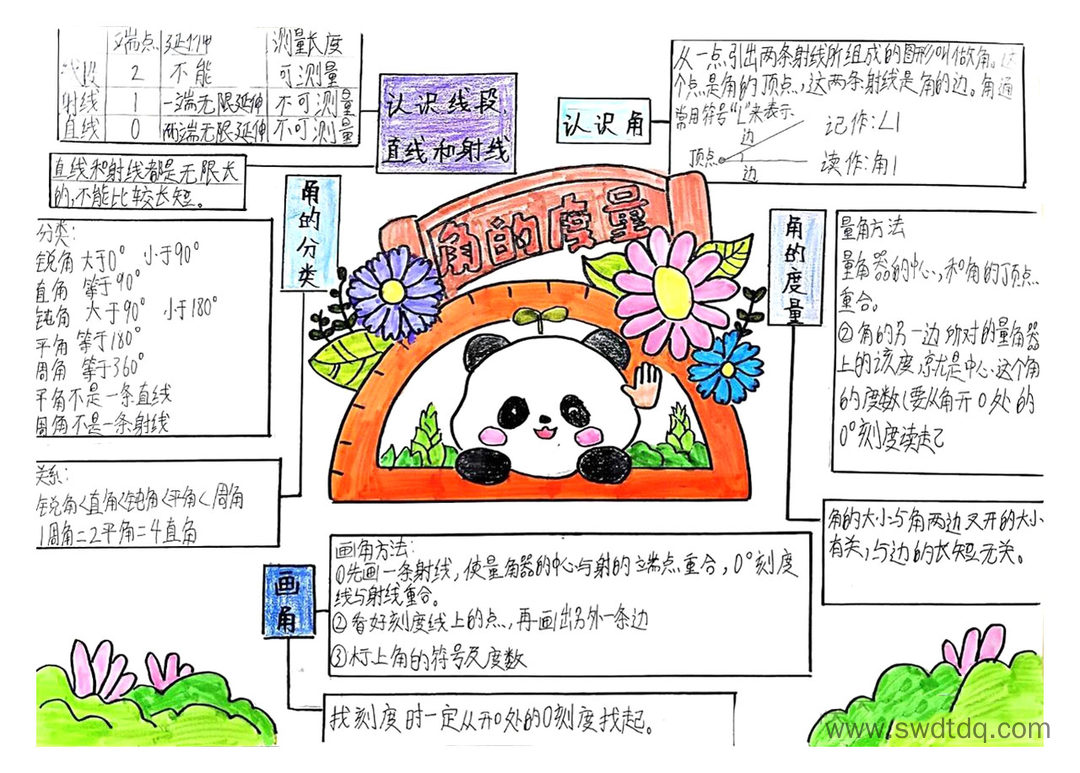 端点 延伸 测量长度
线段 2 不能 可测量
射线 1 一端无限延伸 不可测量
直线 0 两端无限延伸 不可测量
认识线段
直线和射线
直线和射线都是无限长
的,不能比较长短。
认识角
从一点引出两条射线所组成的图形叫做角。这
个点是角的顶点,这两条射线是角的边。角通
常用符号“∠”来表示
边
顶点
边
记作:∠1
读作:角1
角的度量
角的分类
分类:
锐角 大于0° 小于90°
直角 等于90°
钝角 大于90° 小于180°
平角 等于180°
周角 等于360°
平角不是一条直线
周角不是一条射线
关系:
锐角<直角<钝角<平角<周角
1周角=2平角=4直角
角的度量
量角方法
量角器的中心,和角的顶点
重合。
②角的另一边所对的量角器
上的该度,就是中心这个角
的度数(要从角开0处的
0°刻度读起
角的大小与角两边叉开的大小
有关,与边的长短无关。
画角
画角方法:
①先画一条射线,使量角器的中心与射的端点重合,0°刻度
线与射线重合。
②看好刻度线上的点,再画出另外一条边
③标上角的符号及度数
找刻度时一定从开0处的0刻度找起。
www.swdtdq.com